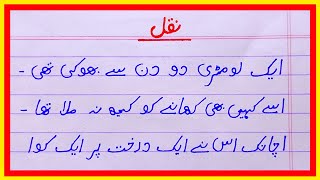 نقل
ایک لومڑی دو دن سے بھوکی تھی -
اسے کہیں بھی کھانے کو کچھ نہ ملا تھا -
اچانک اس نے ایک درخت پر ایک کوا